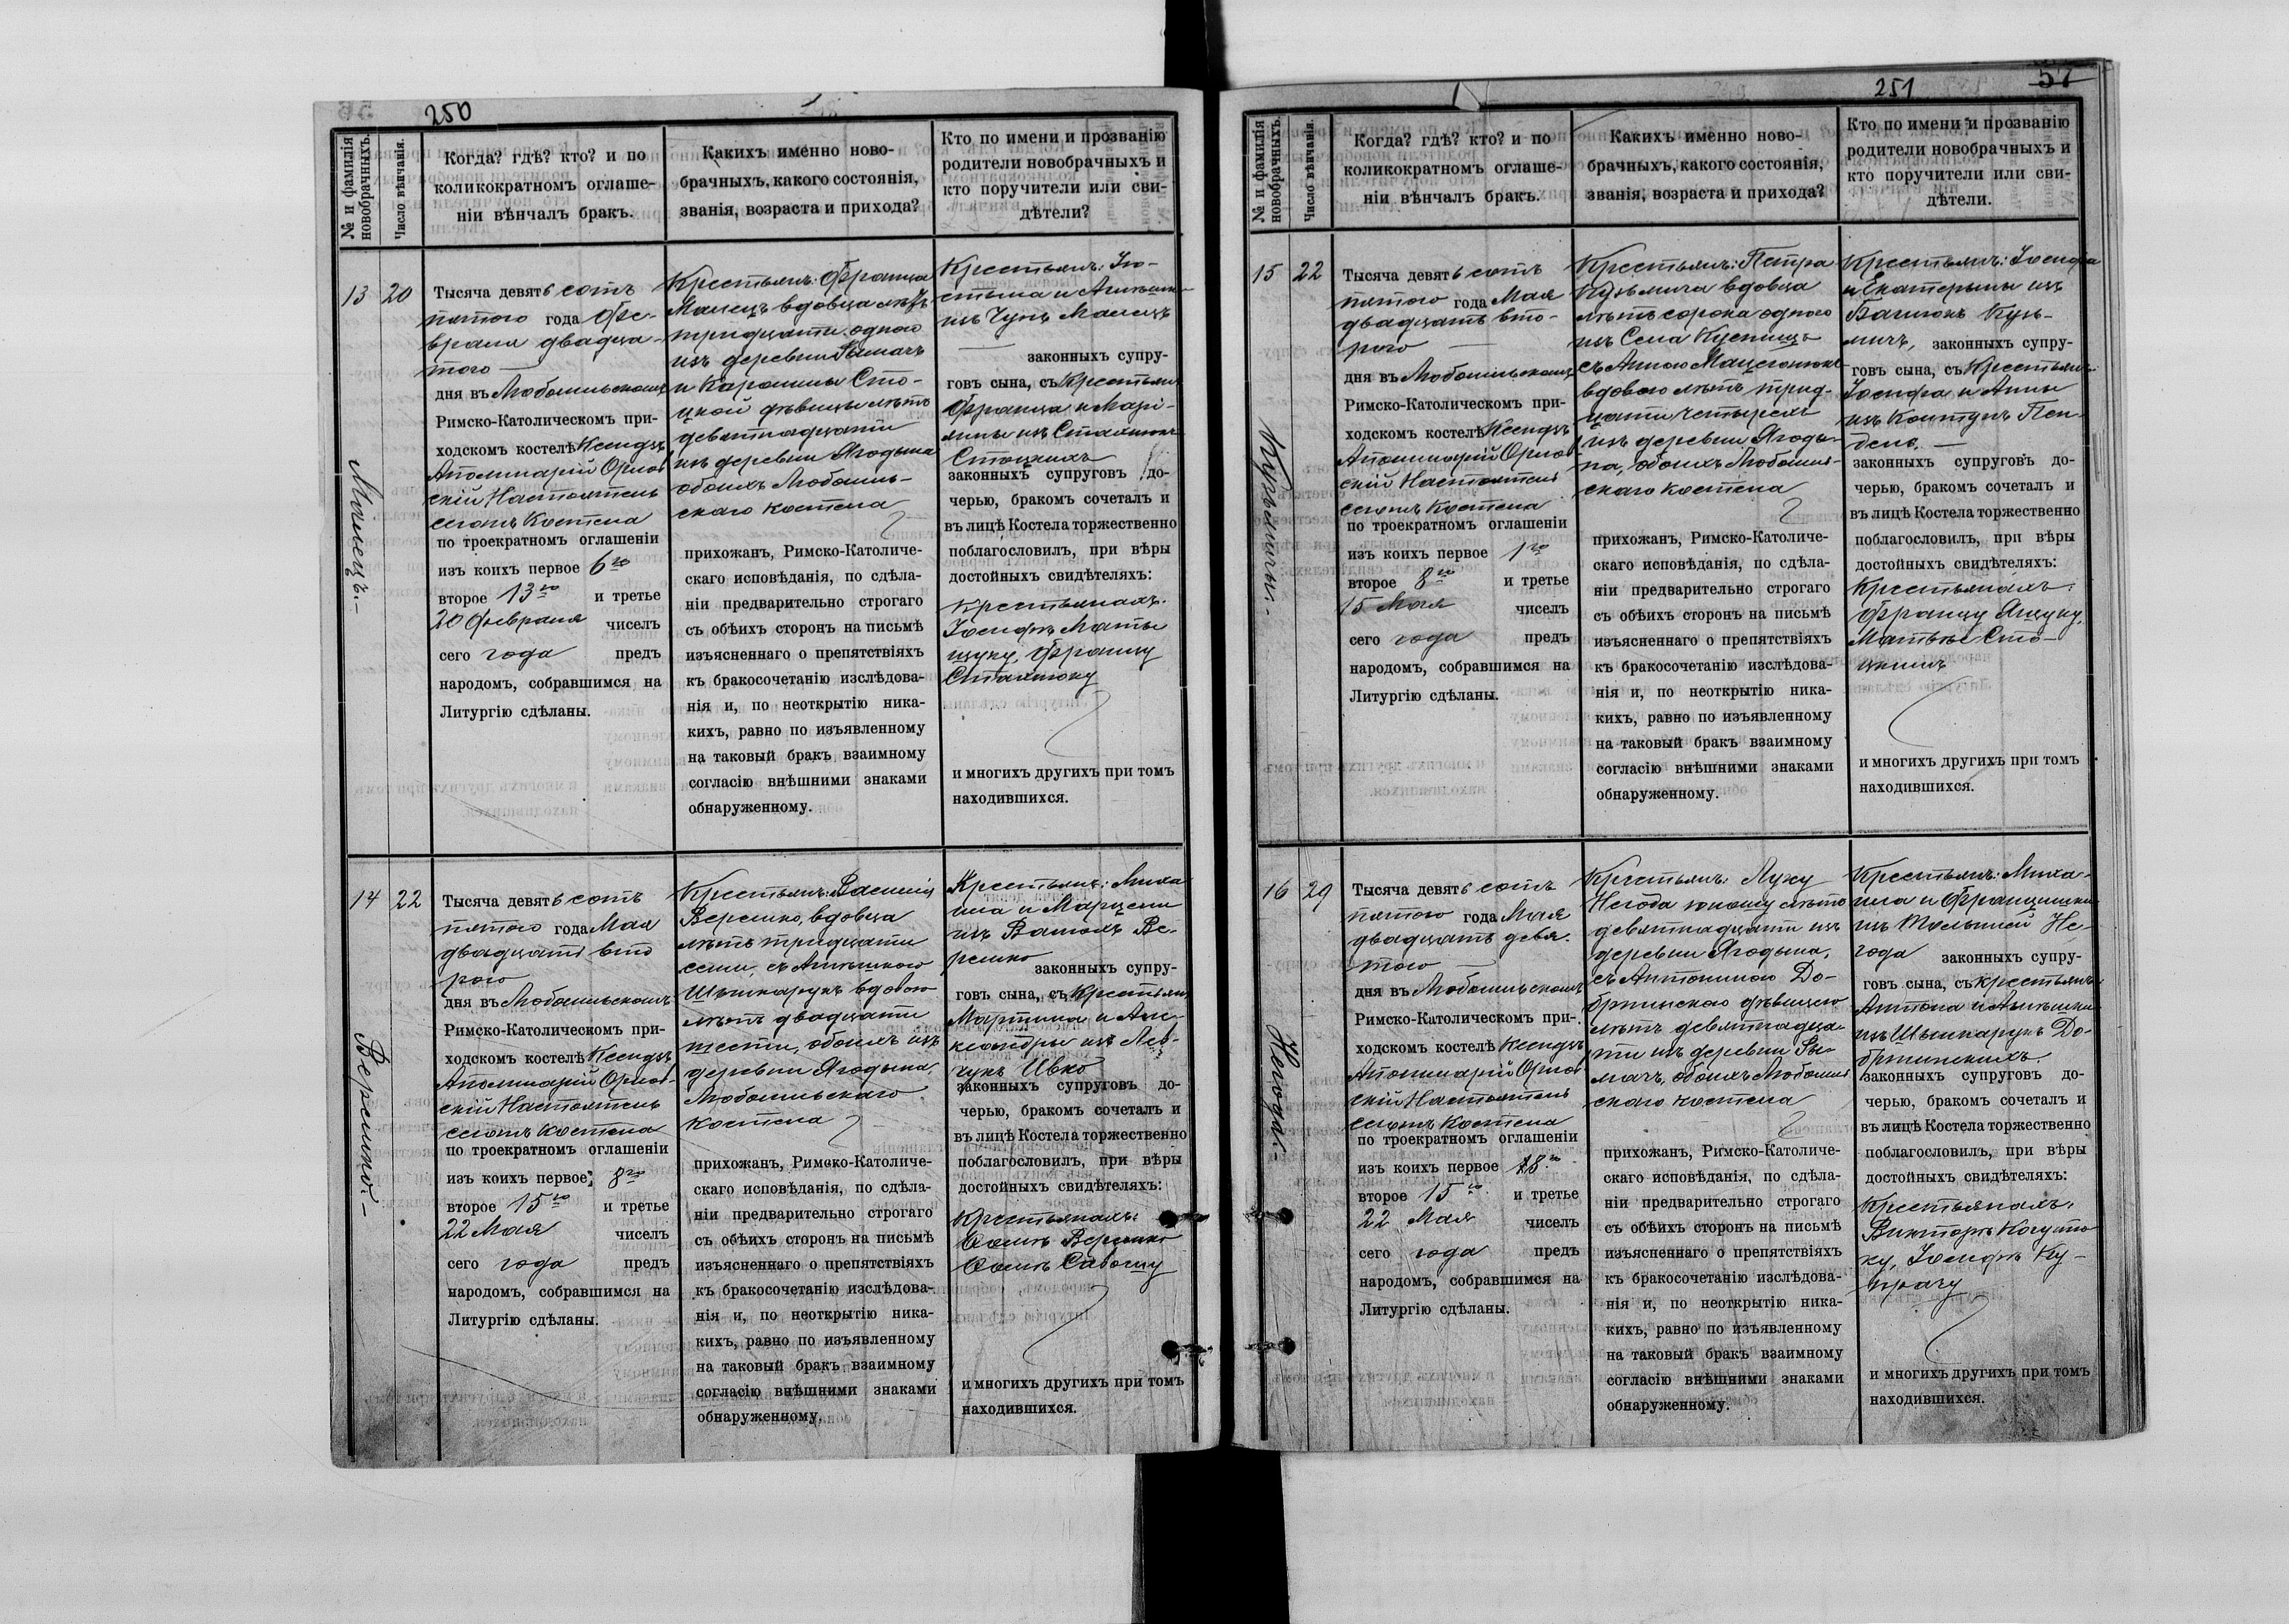 250
№ и фамилія
новобрачныхъ.
Число вѣнчанія.
Когда? гдѣ? кто? и по
коликократномъ оглаше-
ніи вѣнчалъ бракъ.
Какихъ именно ново-
брачныхъ, какого состоянія,
званія, возраста и прихода?
Кто по имени и прозванію
родители новобрачныхъ и
кто поручители или сви-
дѣтели?
13
20
Малецъ.-
Тысяча девятьсотъ
пятого года Фе-
враля двадца-
того
дня въ Любомльскомъ
Римско-Католическомъ при-
ходскомъ костелѣ Ксендзъ
Аполинарій Орлов-
скій Настоятель
сегожъ Костела
по троекратномъ оглашеніи
изъ коихъ первое 6го
второе 13го и третье
20 Февраля чиселъ
сего года предъ
народомъ, собравшимся на
Литургію сдѣланы.
Крестьянъ: Франца
Малецъ вдовца лѣтъ
тридцати одного
изъ деревни Рымачъ
и Каролины Сто-
цкой дѣвицы лѣтъ
девятнадцати
изъ деревни Ягодына
обоихъ Любомль-
скаго костела
прихожанъ, Римско-Католиче-
скаго исповѣданія, по сдѣла-
ніи предварительно строгаго
съ обѣихъ сторонъ на письмѣ
изъясненнаго о препятствіяхъ
къ бракосочетанію изслѣдова-
нія и, по неоткрытію ника-
кихъ, равно по изъявленному
на таковый бракъ взаимному
согласію внѣшними знаками
обнаруженному.
Крестьянъ: Ю-
стына и
изъ Малецъ
законныхъ супру-
говъ сына, съ Крестьянъ
Франца и Марі-
янны изъ Стахнюкъ
Стоцкихъ
законныхъ супруговъ до-
черью, бракомъ сочеталъ и
въ лицѣ Костела торжественно
поблагословилъ, при вѣры
достойныхъ свидѣтеляхъ:
Крестьянахъ:
Іосифѣ Маты
щуку, Францу
Стахнюку
и многихъ другихъ при томъ
находившихся.
14
22
Веремко.-
Тысяча девятьсотъ
пятого года Мая
двадцать вто
рого
дня въ Любомльскомъ
Римско-Католическомъ при-
ходскомъ костелѣ Ксендзъ
Аполинарій Орлов-
скій Настоятель
сегожъ костела
по троекратномъ оглашеніи
изъ коихъ первое 8го
второе 15го и третье
22 Мая чиселъ
сего года предъ
народомъ, собравшимся на
Литургію сдѣланы.
Крестьянъ: Василія
Веремко, вдовца
лѣтъ тридцати
семи, съ Агнѣшкою
Шынкарукъ вдовою
лѣтъ двадцати
шести, обоихъ изъ
деревни Ягодына,
Любомльскаго
костела
прихожанъ, Римско-Католиче-
скаго исповѣданія, по сдѣла-
ніи предварительно строгаго
съ обѣихъ сторонъ на письмѣ
изъясненнаго о препятствіяхъ
къ бракосочетанію изслѣдова-
нія и, по неоткрытію ника-
кихъ, равно по изъявленному
на таковый бракъ взаимному
согласію внѣшними знаками
обнаруженному.
Крестьянъ: Миха
ила и Марцели
изъ Ве-
ремко
законныхъ супру-
говъ сына, съ Крестьянъ
Мартина и Але-
ксандры изъ Лев-
чукъ Ивко
законныхъ супруговъ до-
черью, бракомъ сочеталъ и
въ лицѣ Костела торжественно
поблагословилъ, при вѣры
достойныхъ свидѣтеляхъ:
Крестьянахъ:
Осипѣ Веремко
Осипѣ Савошу
и многихъ другихъ при томъ
находившихся.
251
57
№ и фамилія
новобрачныхъ.
Число вѣнчанія.
Когда? гдѣ? кто? и по
коликократномъ оглаше-
ніи вѣнчалъ бракъ.
Какихъ именно ново-
брачныхъ, какого состоянія,
званія, возраста и прихода?
Кто по имени и прозванію
родители новобрачныхъ и
кто поручители или сви-
дѣтели.
15
22
Кузьмичъ.-
Тысяча девятьсотъ
пятого года Мая
двадцать вто-
рого
дня въ Любомльскомъ
Римско-Католическомъ при-
ходскомъ костелѣ Ксендзъ
Аполинарій Орлов
скій Настоятель
сегожъ Костела
по троекратномъ оглашеніи
изъ коихъ первое 1го
второе 8го и третье
15 Мая чиселъ
сего года предъ
народомъ, собравшимся на
Литургію сдѣланы.
Крестьянъ: Петра
Кузьмича вдовца
лѣтъ сорока одного
изъ Села Куснищъ
съ Анною Мацегонюкъ
вдовою лѣтъ трид-
цати четырехъ
изъ деревни Ягоды-
на, обоихъ Любомль-
скаго костела
прихожанъ, Римско-Католиче-
скаго исповѣданія, по сдѣла-
ніи предварительно строгаго
съ обѣихъ сторонъ на письмѣ
изъясненнаго о препятствіяхъ
къ бракосочетанію изслѣдова-
нія и, по неоткрытію ника-
кихъ, равно по изъявленному
на таковый бракъ взаимному
согласію внѣшними знаками
обнаруженному.
Крестьянъ: Іосифа
и Екатерыны изъ
Кузь-
мичъ, законныхъ супру-
говъ сына, съ Крестьянъ:
Іосифа и Анны
изъ Ковтунъ Пен-
дель.
законныхъ супруговъ до-
черью, бракомъ сочеталъ и
въ лицѣ Костела торжественно
поблагословилъ, при вѣры
достойныхъ свидѣтеляхъ:
Крестьянахъ:
Францу Ящуку,
Матвѣю Сто-
цкимъ
и многихъ другихъ при томъ
находившихся.
16
29
Негода.-
Тысяча девятьсотъ
пятого года Мая
двадцать девя-
того
дня въ Любомльскомъ
Римско-Католическомъ при-
ходскомъ костелѣ Ксендзъ
Аполинарій Орлов
скій Настоятель
сегожъ Костела
по троекратномъ оглашеніи
изъ коихъ первое 8го
второе 15го и третье
22 Мая чиселъ
сего года предъ
народомъ, собравшимся на
Литургію сдѣланы.
Крестьянъ: Луку
Негода юношу лѣтъ
девятнадцати изъ
деревни Ягодына,
съ Антониною До-
бртынскою дѣвицею
лѣтъ девятнадца-
ти изъ деревни Ры-
мачъ, обоихъ Любомль
скаго костела
прихожанъ, Римско-Католиче-
скаго исповѣданія, по сдѣла-
ніи предварительно строгаго
съ обѣихъ сторонъ на письмѣ
изъясненнаго о препятствіяхъ
къ бракосочетанію изслѣдова-
нія и, по неоткрытію ника-
кихъ, равно по изъявленному
на таковый бракъ взаимному
согласію внѣшними знаками
обнаруженному.
Крестьянъ: Миха-
ила и Францишки
изъ Не-
года законныхъ супру-
говъ сына, съ Крестьянъ
Антона и Агнѣшки
изъ Шынкарукъ До-
бртынскихъ.
законныхъ супруговъ до-
черью, бракомъ сочеталъ и
въ лицѣ Костела торжественно
поблагословилъ, при вѣры
достойныхъ свидѣтеляхъ:
Крестьянахъ:
Викторѣ Когуто
ку, Іосифѣ Ку-
прачу
и многихъ другихъ при томъ
находившихся.